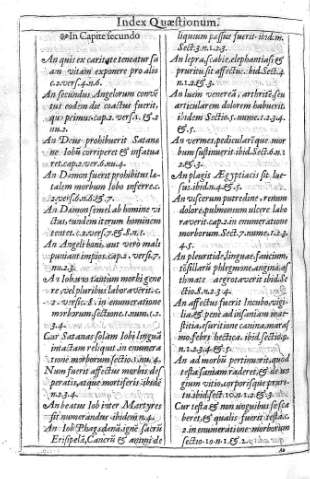 Index Quæstionum.
In Capite secundo
An quis ex caritate teneatur sa
am vitam exponere pro alio
c.2.vers.4.n.6.
An secundus Angelorum conve
tus eodem die coactus fuerit,
quo primus.cap.2.vers.1. & 2
nu.2.
An Deus prohibuerit Satana
ne Iobũ corriperet & infatua
ret.cap.2.ver.6.nu.4.
An Dæmon fuerit prohibitus le-
talem morbum Iobo inferre.c.
2.vers.6.n.6.& 7.
An Dæmon semel ab homine vi
ctus, eundem iterum homine
tentet.c.2.vers.7.& 8.n.1.
An Angeli boni, aut vero mali
puniant impios.cap.2.vers.7.
nu.2.3.
An Iobus tantum morbi gene
re, vel pluribus laboraverit.c.
2.versic.8. in enumeratione
morborum.sectione.1.num.1.2.
3.4.
Cur Satanas solam Iobi linguã
intactam reliquit.in enumera
tione morborum sectio.1.nu.4.
Num fuerit affectus morbis des
peratis, atque mortiferis.ibidẽ
n.2.3.4.
An beatus Iob inter Martyres
sit numerandus.ibidem n.4.
An Iob Phagedæna, igne sacro
Erisipela, Cancro &
liquium passus fuerit.ibidem.
Sect.3.n.1.2.3.
An lepra, scabie, elephantiasi &
pruritu sit affectus.ibid.Sect.4
n.1.2. & 3.
An luem veneream, arthritẽ, seu
articularem dolorem habuerit.
ibidem Sectio.5.nume.1.2.3.4.
& 5.
An vermes, pedicularẽque mor
bum sustinuerit.ibid.Sect.6.n.1
2. & 3.
An plagis Ægyptiacis sit læ-
sus.ibid.n.4.& 5.
An viscerum putredine, renum
dolore, pulmonum ulcere labo
raverit.cap.2.in enumeratione
morborum.Sect.7.nume.1.2.3.
4.5.
An pleuritide, sanie,
tõsillariũ phlegmone, angina, as
thmate ægrotaverit ibid.Se
ctio.8.n.2.3.4.
An affectus fuerit Incubo, vigi-
lia, & pene ad insaniam mæs-
titia, esuritione canina, maras
mo, febre hectica.ibid.sectio.9.
n.1.2.3.4.& 5.
An ad morbũ pertinuerit, quod
testa saniam raderet, & de un
gium vitio, corporisque pruri-
tu.ibid.sect.10.n.1.2.& 3.
Cur testa & non unguibus se sca
beret, & qualis fuerit testa.c.
2.in enumeratione morborum
sectio.10.n.1.& 2.